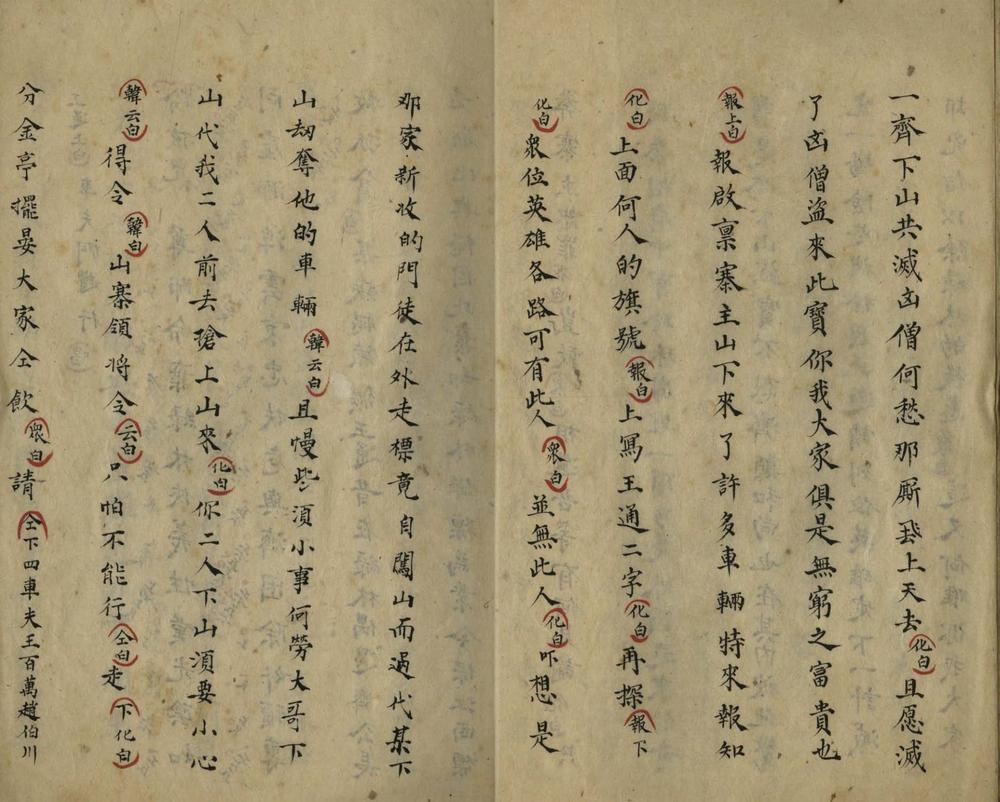 一齊下山共滅凶僧何愁那厮飛上天去化白且愿滅
了凶僧盜來此寳你我大家俱是無窮之富貴也
報上白報啟禀寨主山下來了許多車輛特來報知
化白上面何人的旗號報白上寫王通二字化白再探報下
化白衆位英雄各路可有此人衆白並無此人化白吓想是
那家新收的門徒在外走標竟自闖山而過代某下
山刼奪他的車輛韓云白且慢些須小事何勞大哥下
山代我二人前去搶上山來化白你二人下山須要小心
韓云白得令韓白山寨領將令云白只怕不能行仝白走下化白
分金亭擺晏大家仝飲衆白請仝下四車夫王百萬趙伯川